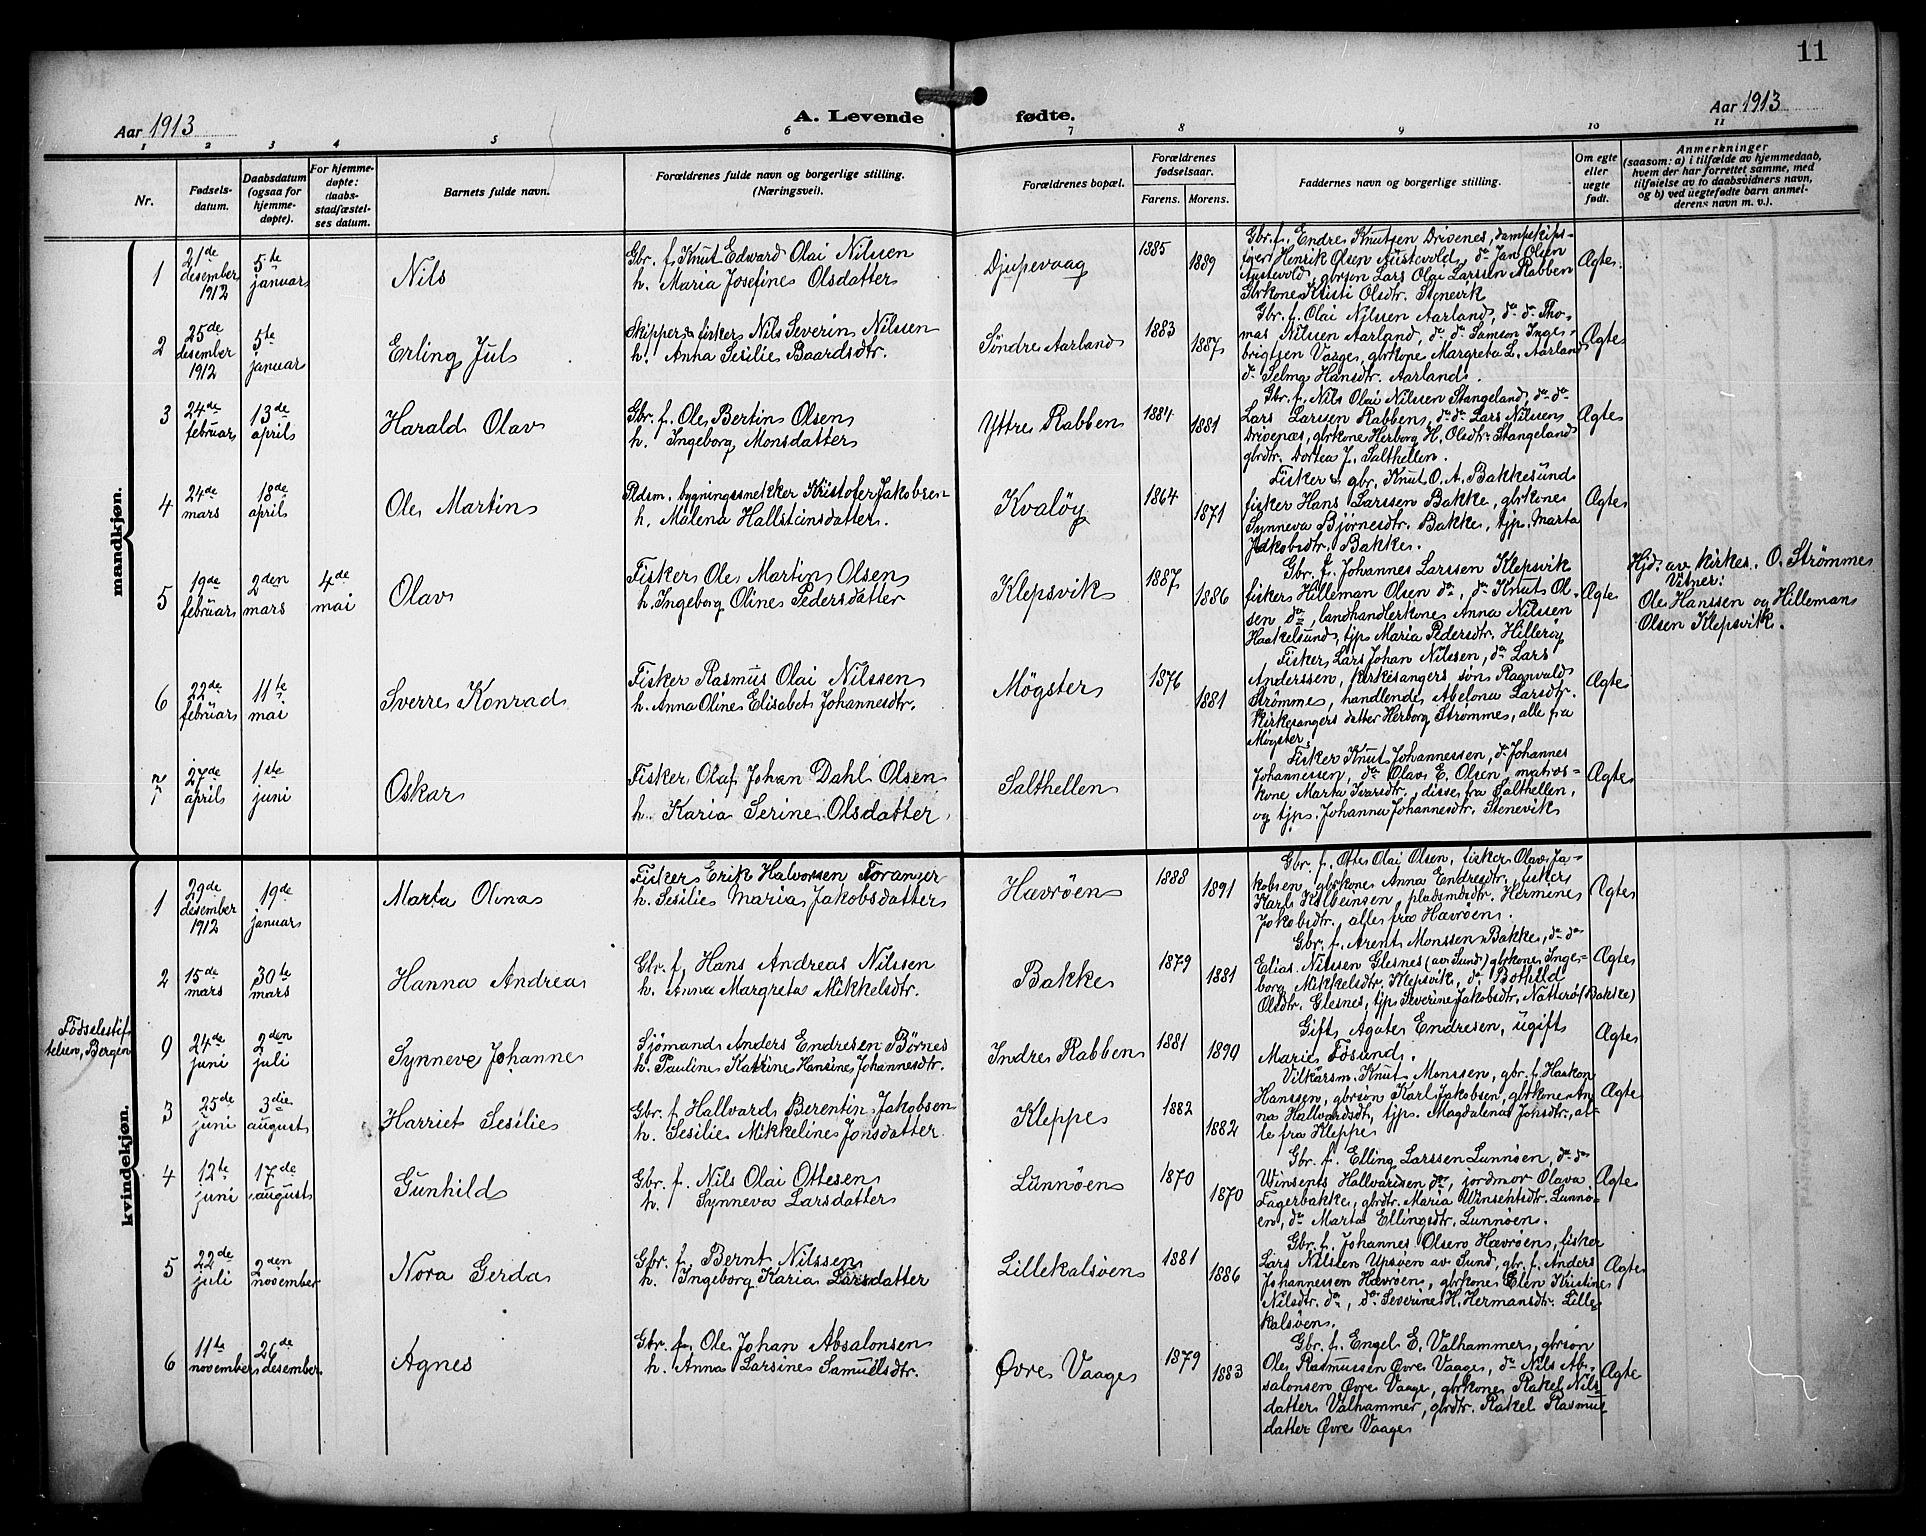 11
Aar 1913
A. Levende fødte.
Aar 1913
1 2 3 4 5 6 7 8 9 10 11
Nr.
Fødsels-
datum.
Daabsdatum
(ogsaa for
hjemme-
døpte).
For hjemme-
døpte:
daabs-
stadfæstel-
ses datum.
Barnets fulde navn.
Forældrenes fulde navn og borgerlige stilling.
(Næringsvei).
Forældrenes bopæl.
Forældrenes
fødselsaar.
Farens. Morens.
Faddernes navn og borgerlige stilling.
Om egte
eller
uegte
født.
Anmerkninger
(saasom: a) i tilfælde av hjemmedaab,
hvem der har forrettet samme, med
tilføielse av to daabsvidners navn,
og b) ved uegtefødte barn anmel-
derens navn m. v.).
mandkjøn.
1
21de
desember
1912
5te
januar
Nils
Gbr. f. Knut Edward Olai Nilssen
h. Maria Josefine Olsdatter
Djupevaag
1885
1889
Gbr. f. Endre Knutsen Drivenes, dampskips-
fører Henrik Olsen Austevold, do Jan Olsen
Austevold, gbrsøn Lars Olai Larssen Rabben
Gbrkone Kristi Olsdtr. Stenevik
Ægte
2
25de
desember
1912
5te
januar
Erling Jul
Skipper & fisker Nils Severin Nilssen
h. Anna Sesilie Baardsdtr.
Søndre Aarland
1883
1887
Gbr. f. Olai Nilssen Aarland, do do Tho-
mas Nilssen Aarland, do do Samson Inge-
brigtsen Vaage, gbrkone Margreta L. Aarland
do Selma Hansdtr. Aarland.
Ægte
3
24de
februar
13de
april
Harald Olav
Gbr. f. Ole Bertin Olsen
h. Ingeborg Monsdatter
Yttre Rabben
1884
1881
Gbr. f. Nils Olai Nilssen Stangeland, do do
Lars Larssen Rabben, do do Lars Nilssen
Drivenæs, gbrkone Herborg H. Olsdtr. Stangeland
gbrdtr. Dortea J. Salthellen.
Ægte
4
24de
mars
18de
april
Ole Martin
Pldsm. bygningssnekker Kristofer Jakobsen
h. Malena Hallsteinsdatter.
Kvaløy
1864
1871
Fisker & gbr. Knut O. A. Bakkesund
fisker Hans Larssen Bakke, gbrkone
Synneva Bjørnesdtr. Bakke, tjp. Marta
Jakobsdtr. Bakke.
Ægte
5
19de
februar
2den
mars
4de
mai
Olav
Fisker Ole Martin Olsen
h. Ingeborg Oline Pedersdatter
Klepsvik
1887
1886
Gbr. f. Johannes Larssen Klepsvik
fisker Hilleman Olsen do, do Knut Ol-
sen do, landhandlerkone Anna Nilssen
Haakelsund, tjp. Maria Pedersdtr. Hillerøy
Ægte
Hjd. av kirkes. O. Strømme
Vitner:
Ole Hanssen og Hilleman
Olsen Klepsvik.
6
22de
februar
11te
mai
Sverre Konrad
Fisker Rasmus Olai Nilssen
h. Anna Oline Elisabet Johannesdtr.
Møgster
1876
1881
Fisker Lars Johan Nilssen, do Lars
Anderssen, kirkesangers søn Ragnvald
Strømme, handlende Abelona Larsdtr.
kirkesangers datter Herborg Strømme, alle fra
Møgster.
Ægte
7
27de
april
1ste
juni
Oskar
Fisker Olaf Johan Dahl Olsen
h. Karia Serine Olsdatter
Salthellen
Fisker Knut Johannessen, do Johannes
Johannessen, do Olav E. Olsen, matros-
kone Marta Ivarsdtr, disse fra Salthellen,
og tjp. Johanna Johannesdtr. Stenevik
Ægte
kvindekjøn.
1
29de
desember
1912
19de
januar
Marta Olina
Fisker Erik Halvorsen Foranger
h. Sesilie Maria Jakobsdatter
Hævrøen
1888
1891
Gbr. f. Otte Olai Olsen, fisker Olav Ja-
kobsen, gbrkone Anna Endresdtr, fisker
Karl Kolbeinsen, pladsmdsdtr. Hermine
Jakobsdtr. alle fra Hævrøen.
Ægte
2
15de
mars
30te
mars
Hanna Andrea
Gbr. f. Hans Andreas Nilssen
h. Anna Margreta Mikkelsdtr.
Bakke
1879
1881
Gbr. f. Arent Monssen Bakke, do do
Elias Nilssen Glesnes (av Sund) gbrkone Inge-
borg Mikkelsdtr. Klepsvik, do Bothild
Olsdtr. Glesnes, tjp. Severine Jakobsdtr. Natterø (Bakke)
Ægte
Fødselsstif-
telsen, Bergen
9
24de
juni
2den
juli
Synneve Johanne
Sjømand Anders Endresen Børnes
h. Pauline Katrine Hansine Johannesdtr.
Indre Rabben
1881
1890
Gift Agate Endresen, ugift
Marie Fosund.
Ægte
3
25de
juni
3die
august
Harriet Sesilie
Gbr. f. Hallvard Berentin Jakobsen
h. Sesilie Mikkeline Jonsdatter
Kleppe
1882
1882
Vilkårsm. Knut Monssen, gbr. f. Haakon
Hanssen, gbrsøn Karl Jakobsen, gbrkone An-
na Hallvardsdt, tjp. Magdalena Johsdtr, al-
le fra Kleppe
Ægte
4
12te
juni
17de
august
Gunhild
Gbr. f. Nils Olai Ottesen
h. Synneva Larsdatter
Lunnøen
1870
1870
Gbr. f. Elling Larssen Lunnøen, do do
Winsents Hallvardsen do, jordmor Olava
Fagerbakke, gbrdtr. Maria Winsentsdtr. Lunnø-
en, do Marta Ellingsdtr. Lunnøen.
Ægte
5
22de
juli
2den
november
Nora Gerda
Gbr. f. Bernt Nilssen
h. Ingeborg Karia Larsdatter
Lillekalsøen
1881
1886
Gbr. f. Johannes Olsen Hævrøen, fisker
Lars Nilssen Upsøen av Sund, gbr. f. Anders
Johannessen Hævrøen, gbrkone Elen Kristine
Nilsdtr. do, do Severine H. Hermansdtr. Lille-
kalsøen.
Ægte
6
11te
november
26de
desember
Agnes
Gbr. f. Ole Johan Absalonsen
h. Anna Larsine Samuelsdtr.
Øvre Vaage
1879
1883
Gbr. f. Engel E. Valhammer, gbrsøn
Ole Rasmussen Øvre Vaage, do Nils Ab-
salonsen Øvre Vaage, gbrkone Rakel Nils-
datter Valhammer, gbrdtr. Rakel Rasmus-
datter Øvre Vaage
Ægte